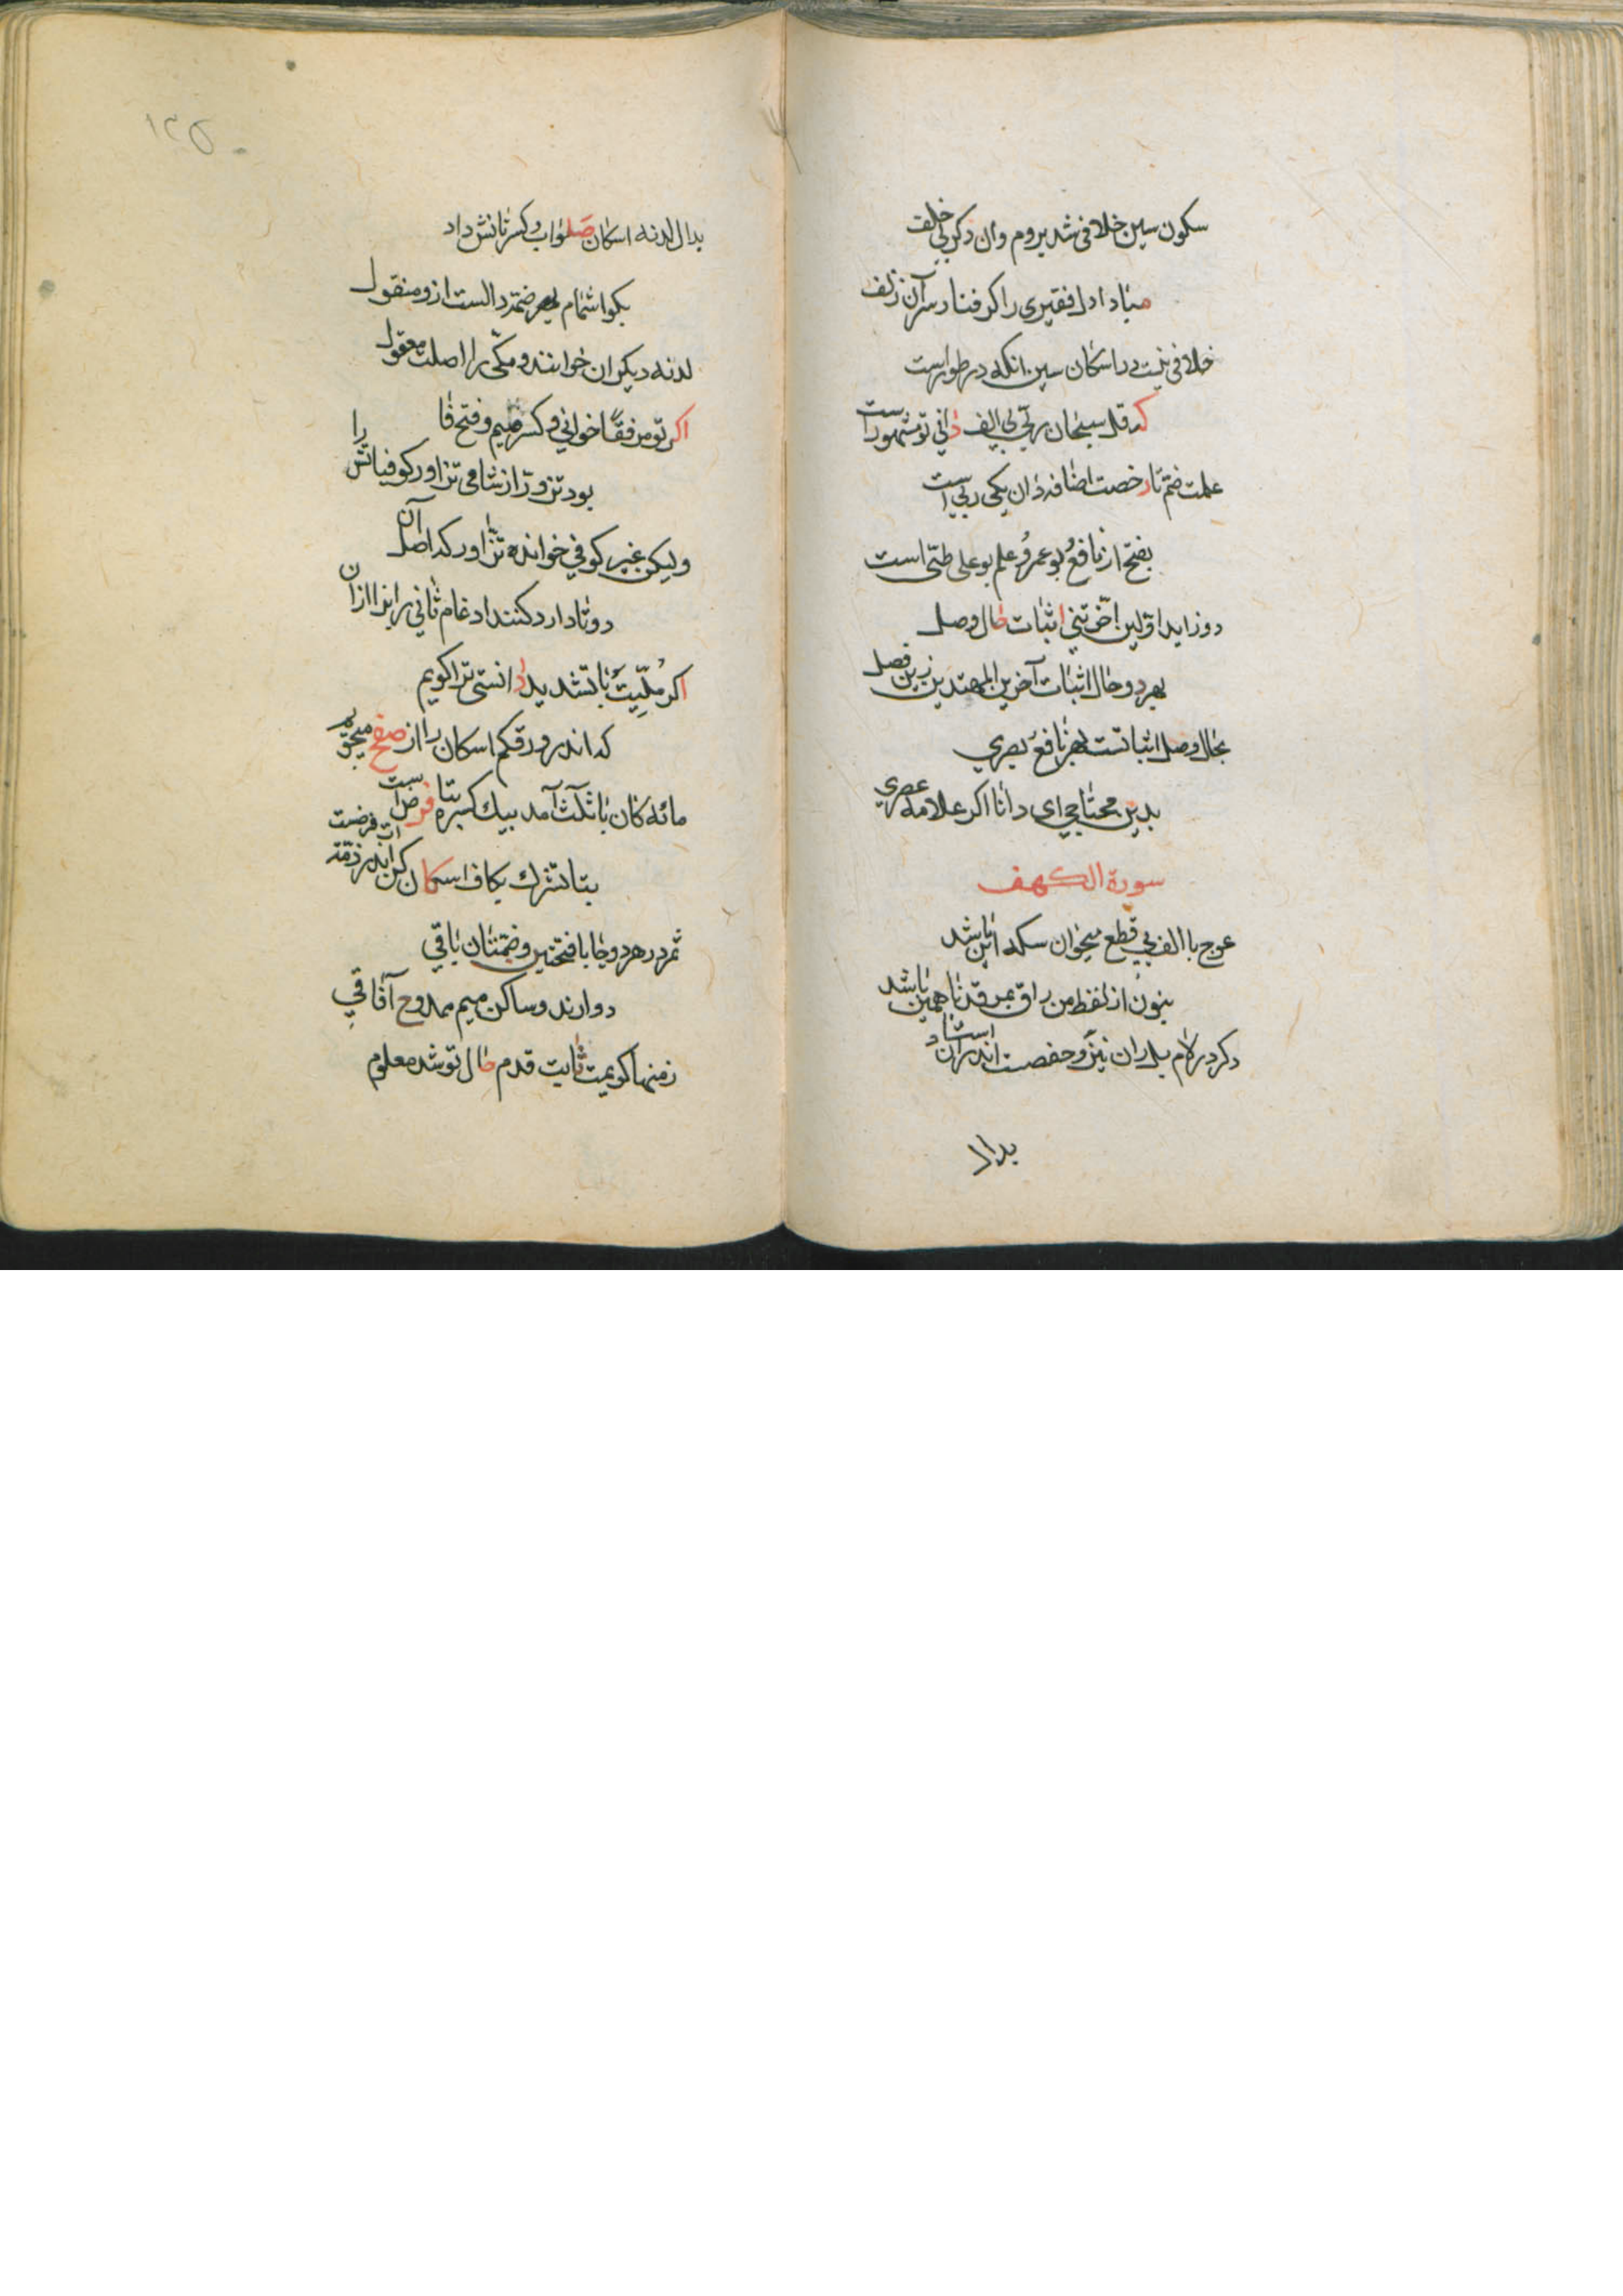 سکون سین خلافی شد بروم وان ذکر بی خلف
مبادا دل فقیری را کر فنار سر آن زلف
خلافی نیست در اسکان سین انکه در طور است
که قل سبحان ربی بی الف دانی تو مشهور است
علمت ضم تا رخصت اضافه دان یکی ربی است
بفتح از نافع و بو عمرو علم بو علی طیّ است
دو زاید اولین اخرتنی اثبات حال وصل
بهر دو حال اثبات آخرین المهتدین زین فصل
بحال وصل اثباتست بهر نافع بصری
بدین محتاجی ای دانا اکر علامه عصری
سورة الکهف
عوج با الف بی قطع میخوان سکته این باشد
بنون از لفظ من راق بمرقدنا همین باشد
دکر در لام بل ران نیز و حفصست اندران استاد
بدال
بدال لدنه اسکان صلواب و کسر تانش داد
بکو اشمام بهر ضمه دالست ازو منقول
لدنه دیکران خوانند و مکی را اصلت معقول
اکر تو مرفقا خوانی و کسر میم و فتح فا را
بود تزورّ از شامی تزاور کوفیانش
ولیکن غیر کوفی خوانده تزّاور که اصل آن
دو تا دارد کنند ادغام ثانی را بزا ازان
اکر ملّیت با تشدید دانستی ترا کویم
که اندر ورقکم اسکان را از صفح میجویم
مائه کان با ثلث آمد بیک کسره بتا فرض است
بتا تشرک بکاف اسکان کن اندر ذمه ات فرضست
ثمر در هر دو جا با فتحتین و ضمتان باقی
دوارند و ساکن میم ممدوح آفاقی
زمنها کویمت ثابت قدم حال تو شد معلوم
۱۲۵